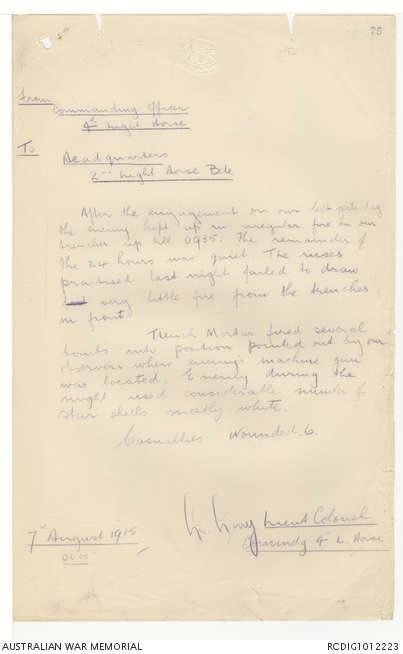 76
From
Commanding Officer
4th Light Horse
To
Headquarters
2nd Light Horse Bde
After the engagement on our left yesterday
the enemy kept up an irregular fire on our
trenches up till 0935. The remainder of
the 24 hours was quiet. The ruses
practised last night failed to draw
very little fire from the trenches
in front
Trench Mortar fired several
bombs into position pointed out by our
observers where enemy's machine gun
was located. Enemy during the
night used considerable number of
star shells mostly white.
Casualties Wounded 6.
Lieut Colonel
4th L Horse
7th August 1915
AUSTRALIAN WAR MEMORIAL
RCDIG1012223